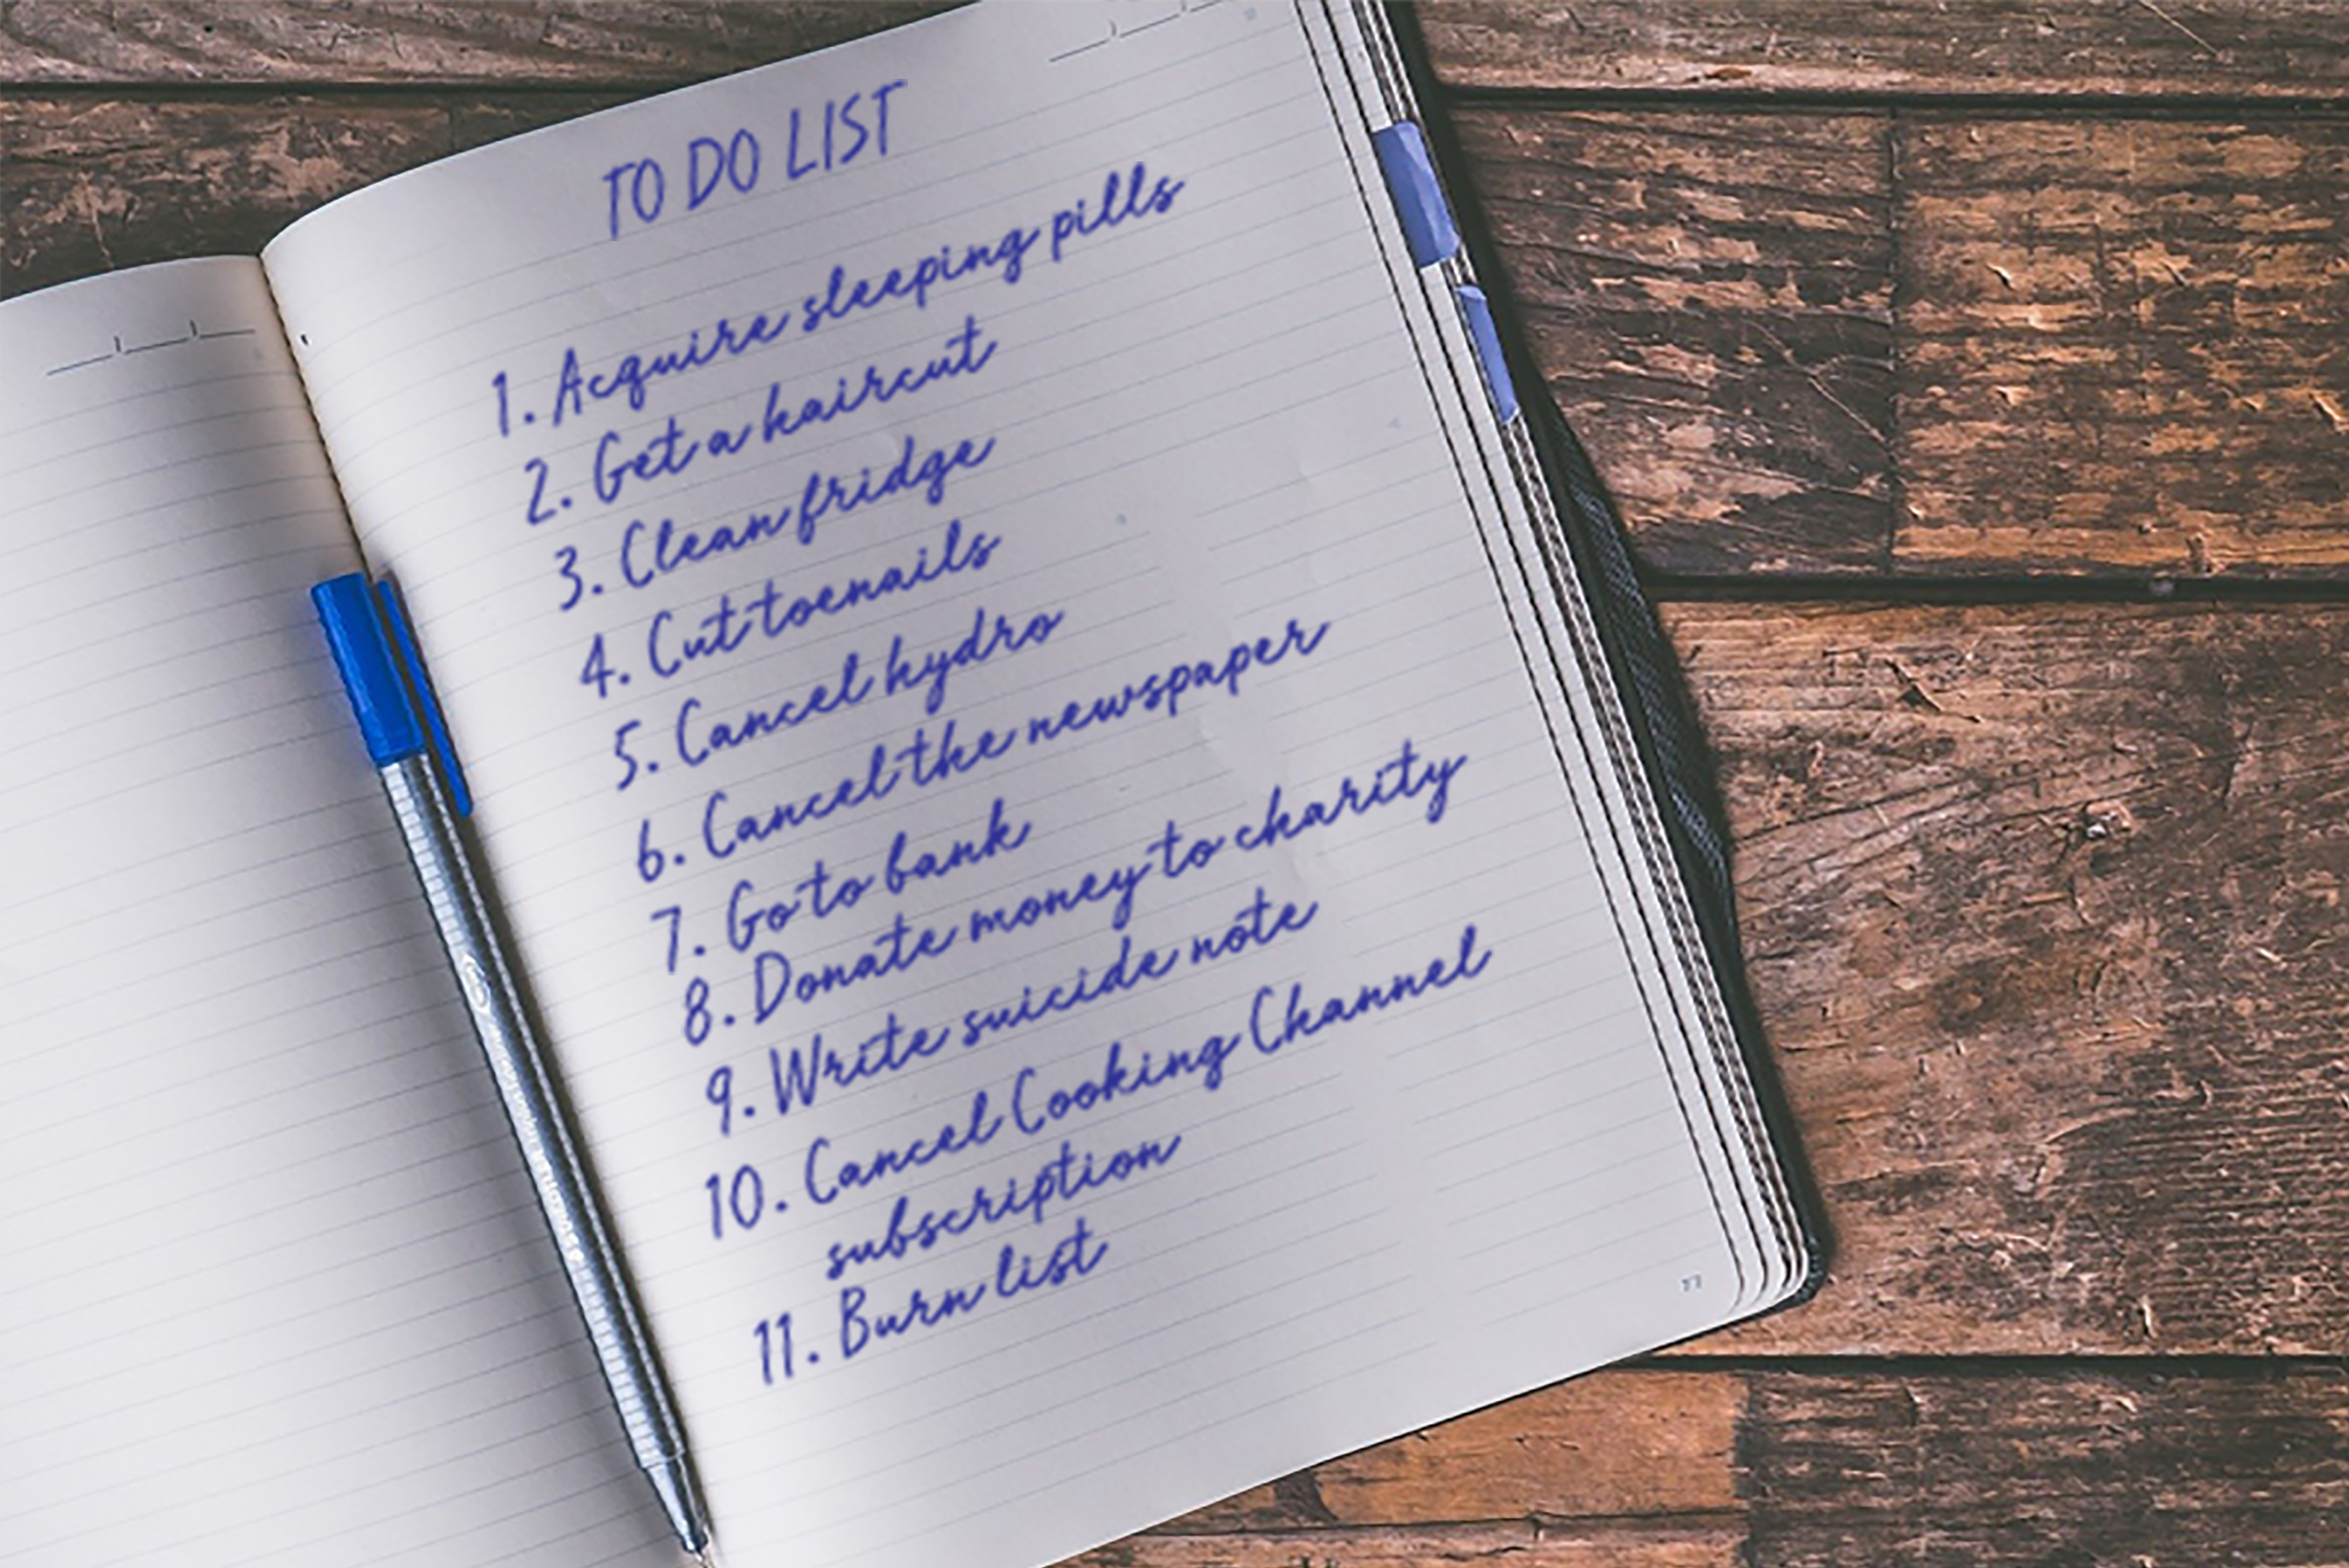 TO DO LIST
1. Acquire sleeping pills
2. Get a haircut
3. Clean fridge
4. Cut toenails
5. Cancel hydro
6. Cancel the newspaper
7. Go to bank
8. Donate money to charity
9. Write suicide note
10. Cancel Cooking Channel
subscription
11. Burn list